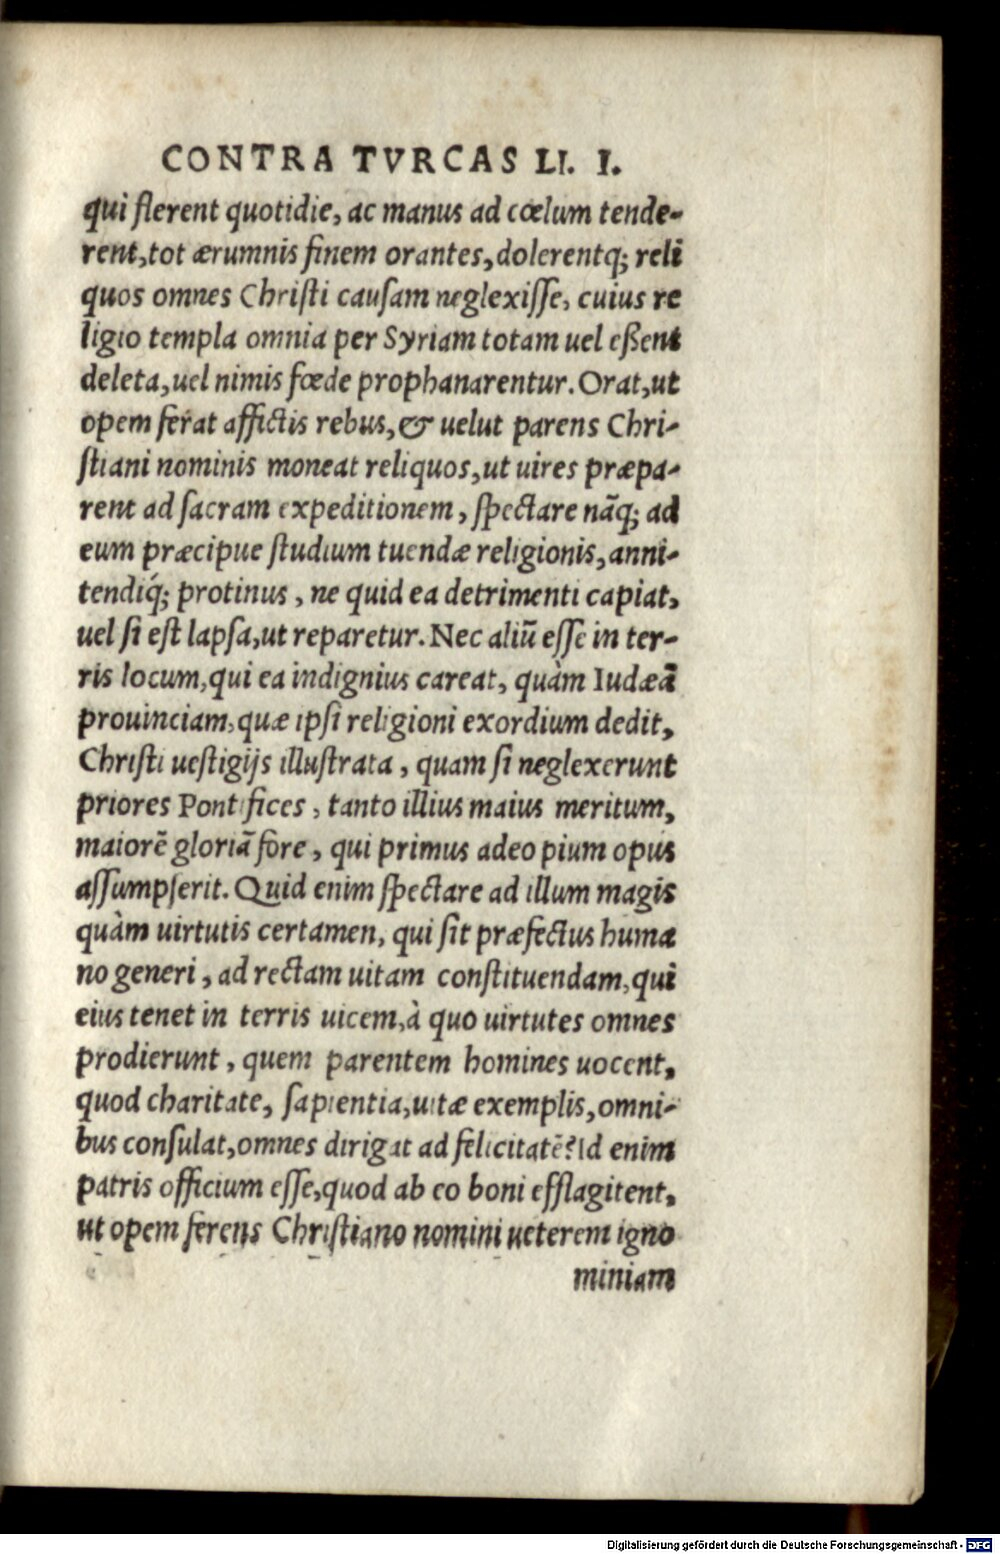 CONTRA TVRCAS LI. I.
qui flerent quotidie, ac manus ad cœlum tende-
rent, tot ærumnis finem orantes, dolerentq; reli
quos omnes Christi causam neglexisse, cuius re
ligio templa omnia per Syriam totam uel eßent
deleta, uel nimis fœde prophanarentur. Orat, ut
opem ferat afflictis rebus, & uelut parens Chri-
stiani nominis moneat reliquos, ut uires præpa-
rent ad sacram expeditionem, spectare nãq; ad
eum præcipue studium tuendæ religionis, anni-
tendiq́; protinus, ne quid ea detrimenti capiat,
uel si est lapsa, ut reparetur. Nec aliũ esse in ter-
ris locum, qui ea indignius careat, quàm Iudæã
prouinciam, quæ ipsi religioni exordium dedit,
Christi uestigijs illustrata, quam si neglexerunt
priores Pontifices, tanto illius maius meritum,
maiorẽ gloriã fore, qui primus adeo pium opus
assumpserit. Quid enim spectare ad illum magis
quàm uirtutis certamen, qui sit præfectus huma
no generi, ad rectam uitam constituendam, qui
eius tenet in terris uicem, à quo uirtutes omnes
prodierunt, quem parentem homines uocent,
quod charitate, sapientia, uitæ exemplis, omni-
bus consulat, omnes dirigat ad felicitatẽ? Id enim
patris officium esse, quod ab eo boni efflagitent,
ut opem ferens Christiano nomini ueterem igno
miniam
Digitalisierung gefördert durch die Deutsche Forschungsgemeinschaft - DFG